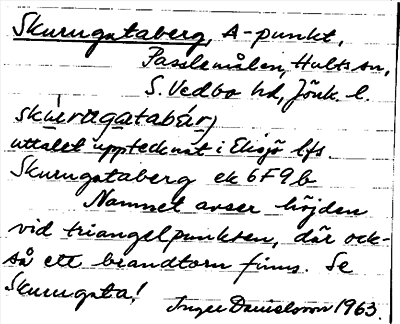 Skurugataberg, A-punkt,
Passlamålen, Hults sn,
S. Vedbo hd, Jönk. l.
uttalet upptecknat i Eksjö lfs.
Skurugataberg ek 6F9b
Namnet avser höjden
vid triangelpunkten, där ock-
så ett brandtorn finns. Se
Skurugata!
Inger Danielsson 1963.